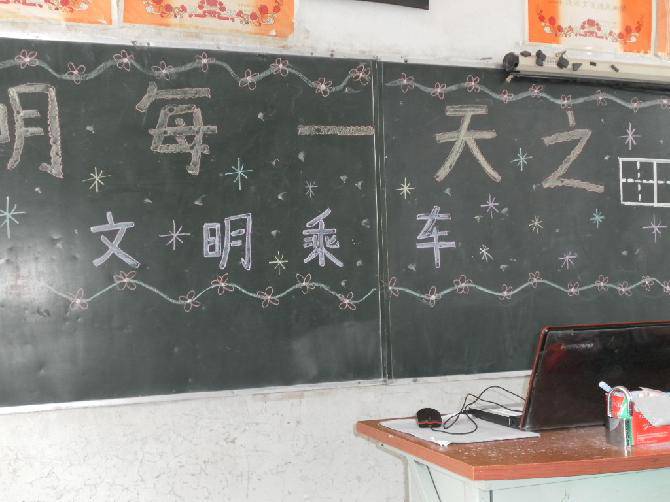 明每一天之
文明乘车